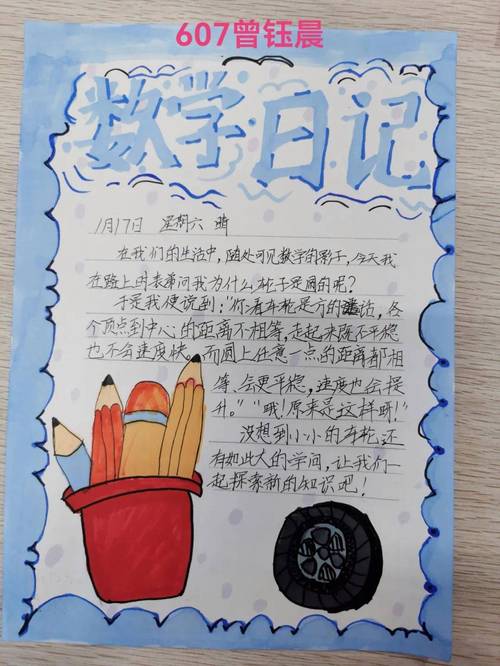 607曾钰晨
数学日记
1月17日 星期六 晴
在我们的生活中，随处可见数学的影子，今天我
在路上时表弟问我为什么轮子是圆的呢？
于是我便说到："你看车轮是方的话，各
个顶点到中心的距离不相等，走起来既不平稳
也不会速度快。而圆上任意一点的距离都相
等，会更平稳，速度也会提
升。""哦！原来是这样呀！"
没想到小小的车轮，还
有如此大的学问，让我们一
起探索新的知识吧！